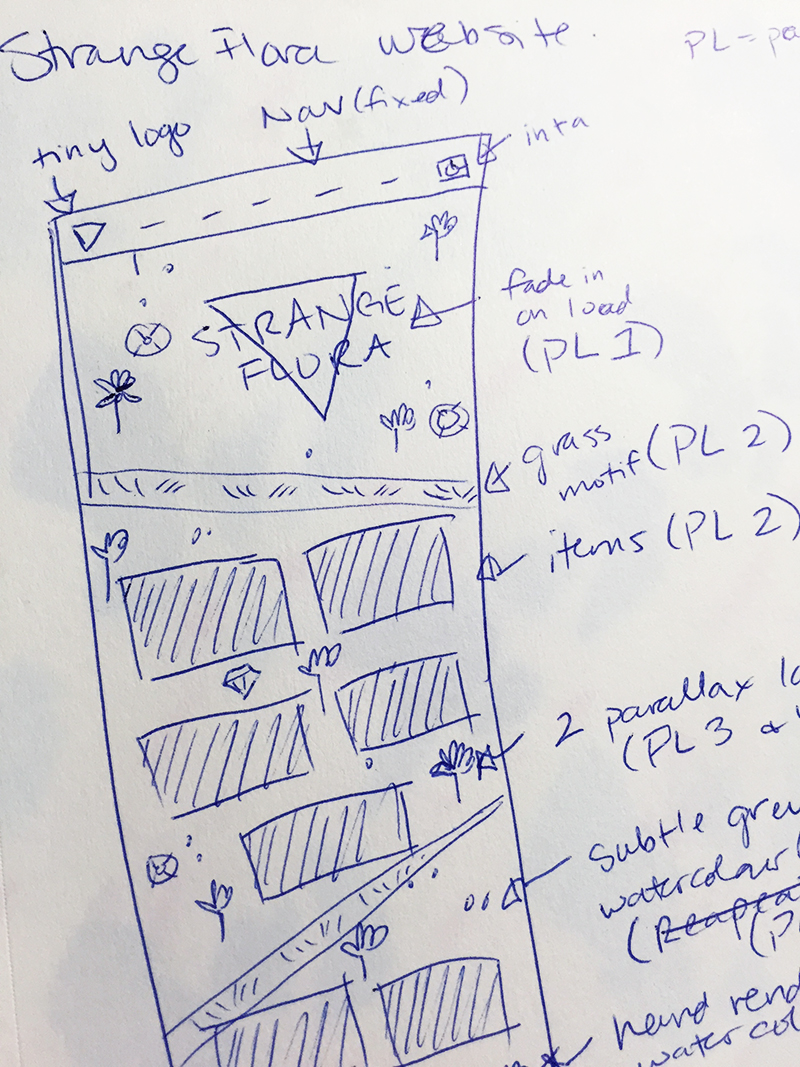 Strange Flora website.
PL = pa
tiny logo
Nav (fixed)
insta
STRANGE
FLORA
fade in
on load
(PL 1)
grass
motif (PL 2)
items (PL 2)
2 parallax la
(PL 3 &
subtle grey
watercolour
(Reapea
(PL
hand rend
watercol